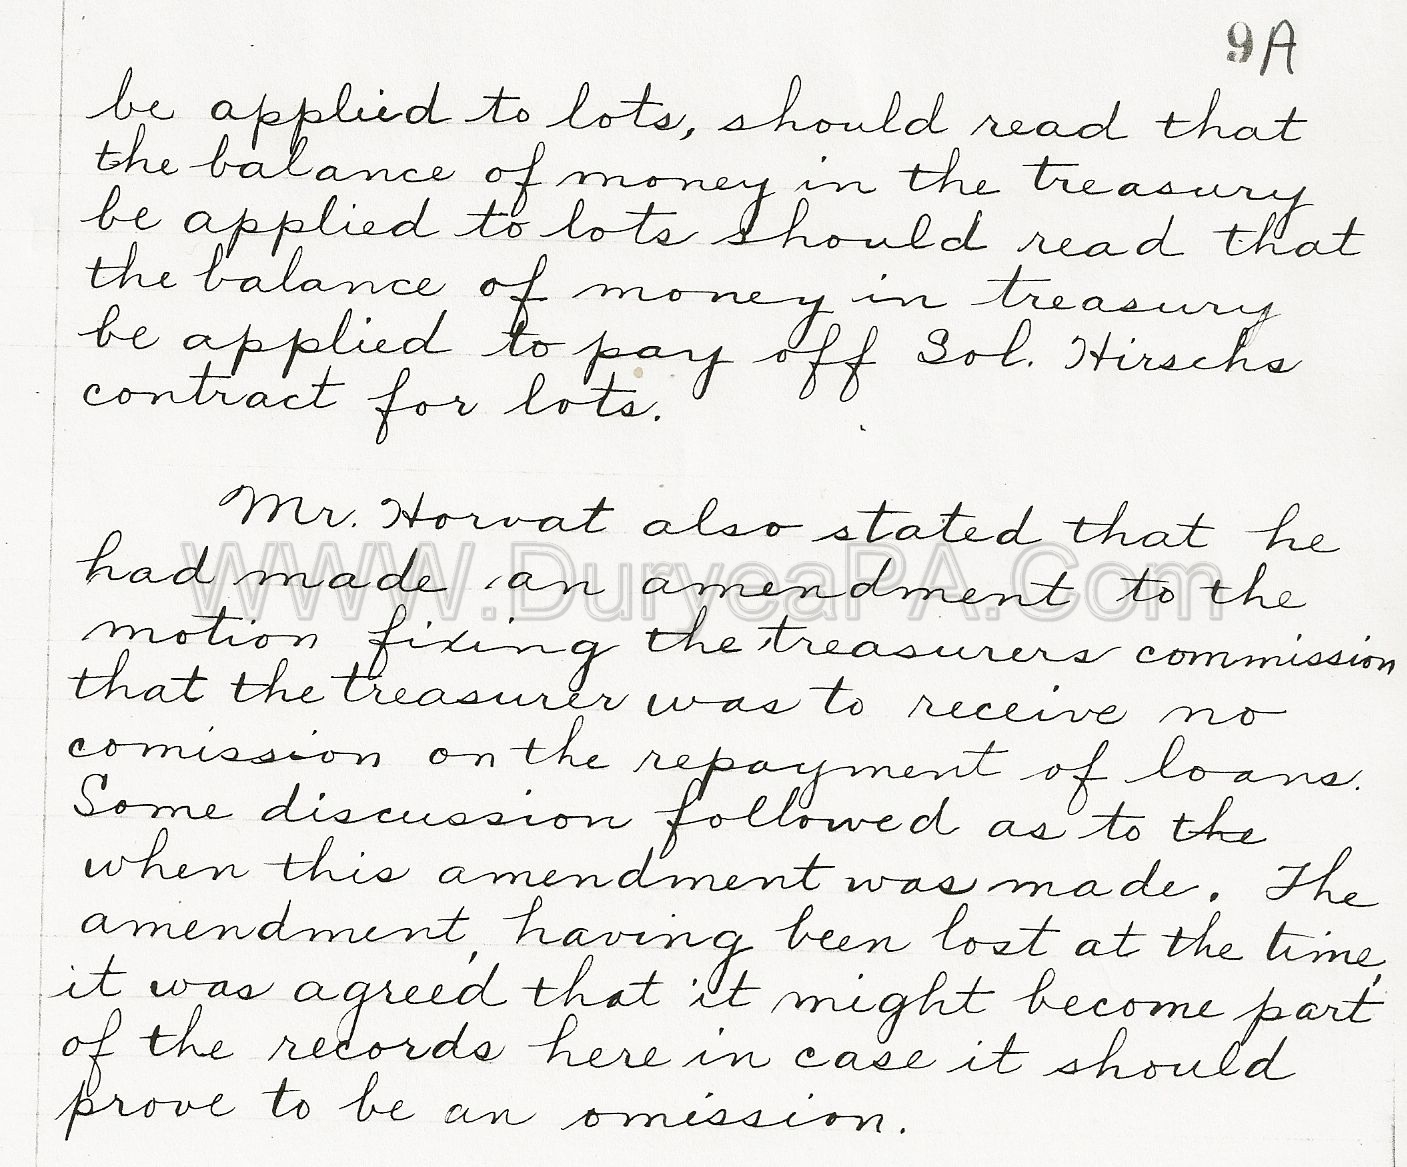 9A
be applied to lots, should read that
the balance of money in the treasury
be applied to lots should read that
the balance of money in treasury
be applied to pay off Sol. Hirschs
contract for lots.
Mr. Horvat also stated that he
had made an amendment to the
motion fixing the treasurers commission
that the treasurer was to receive no
comission on the repayment of loans.
Some discussion followed as to the
when this amendment was made. The
amendment, having been lost at the time,
it was agreed that it might become part
of the records here in case it should
prove to be an omission.
WWW.DuryeaPA.Com